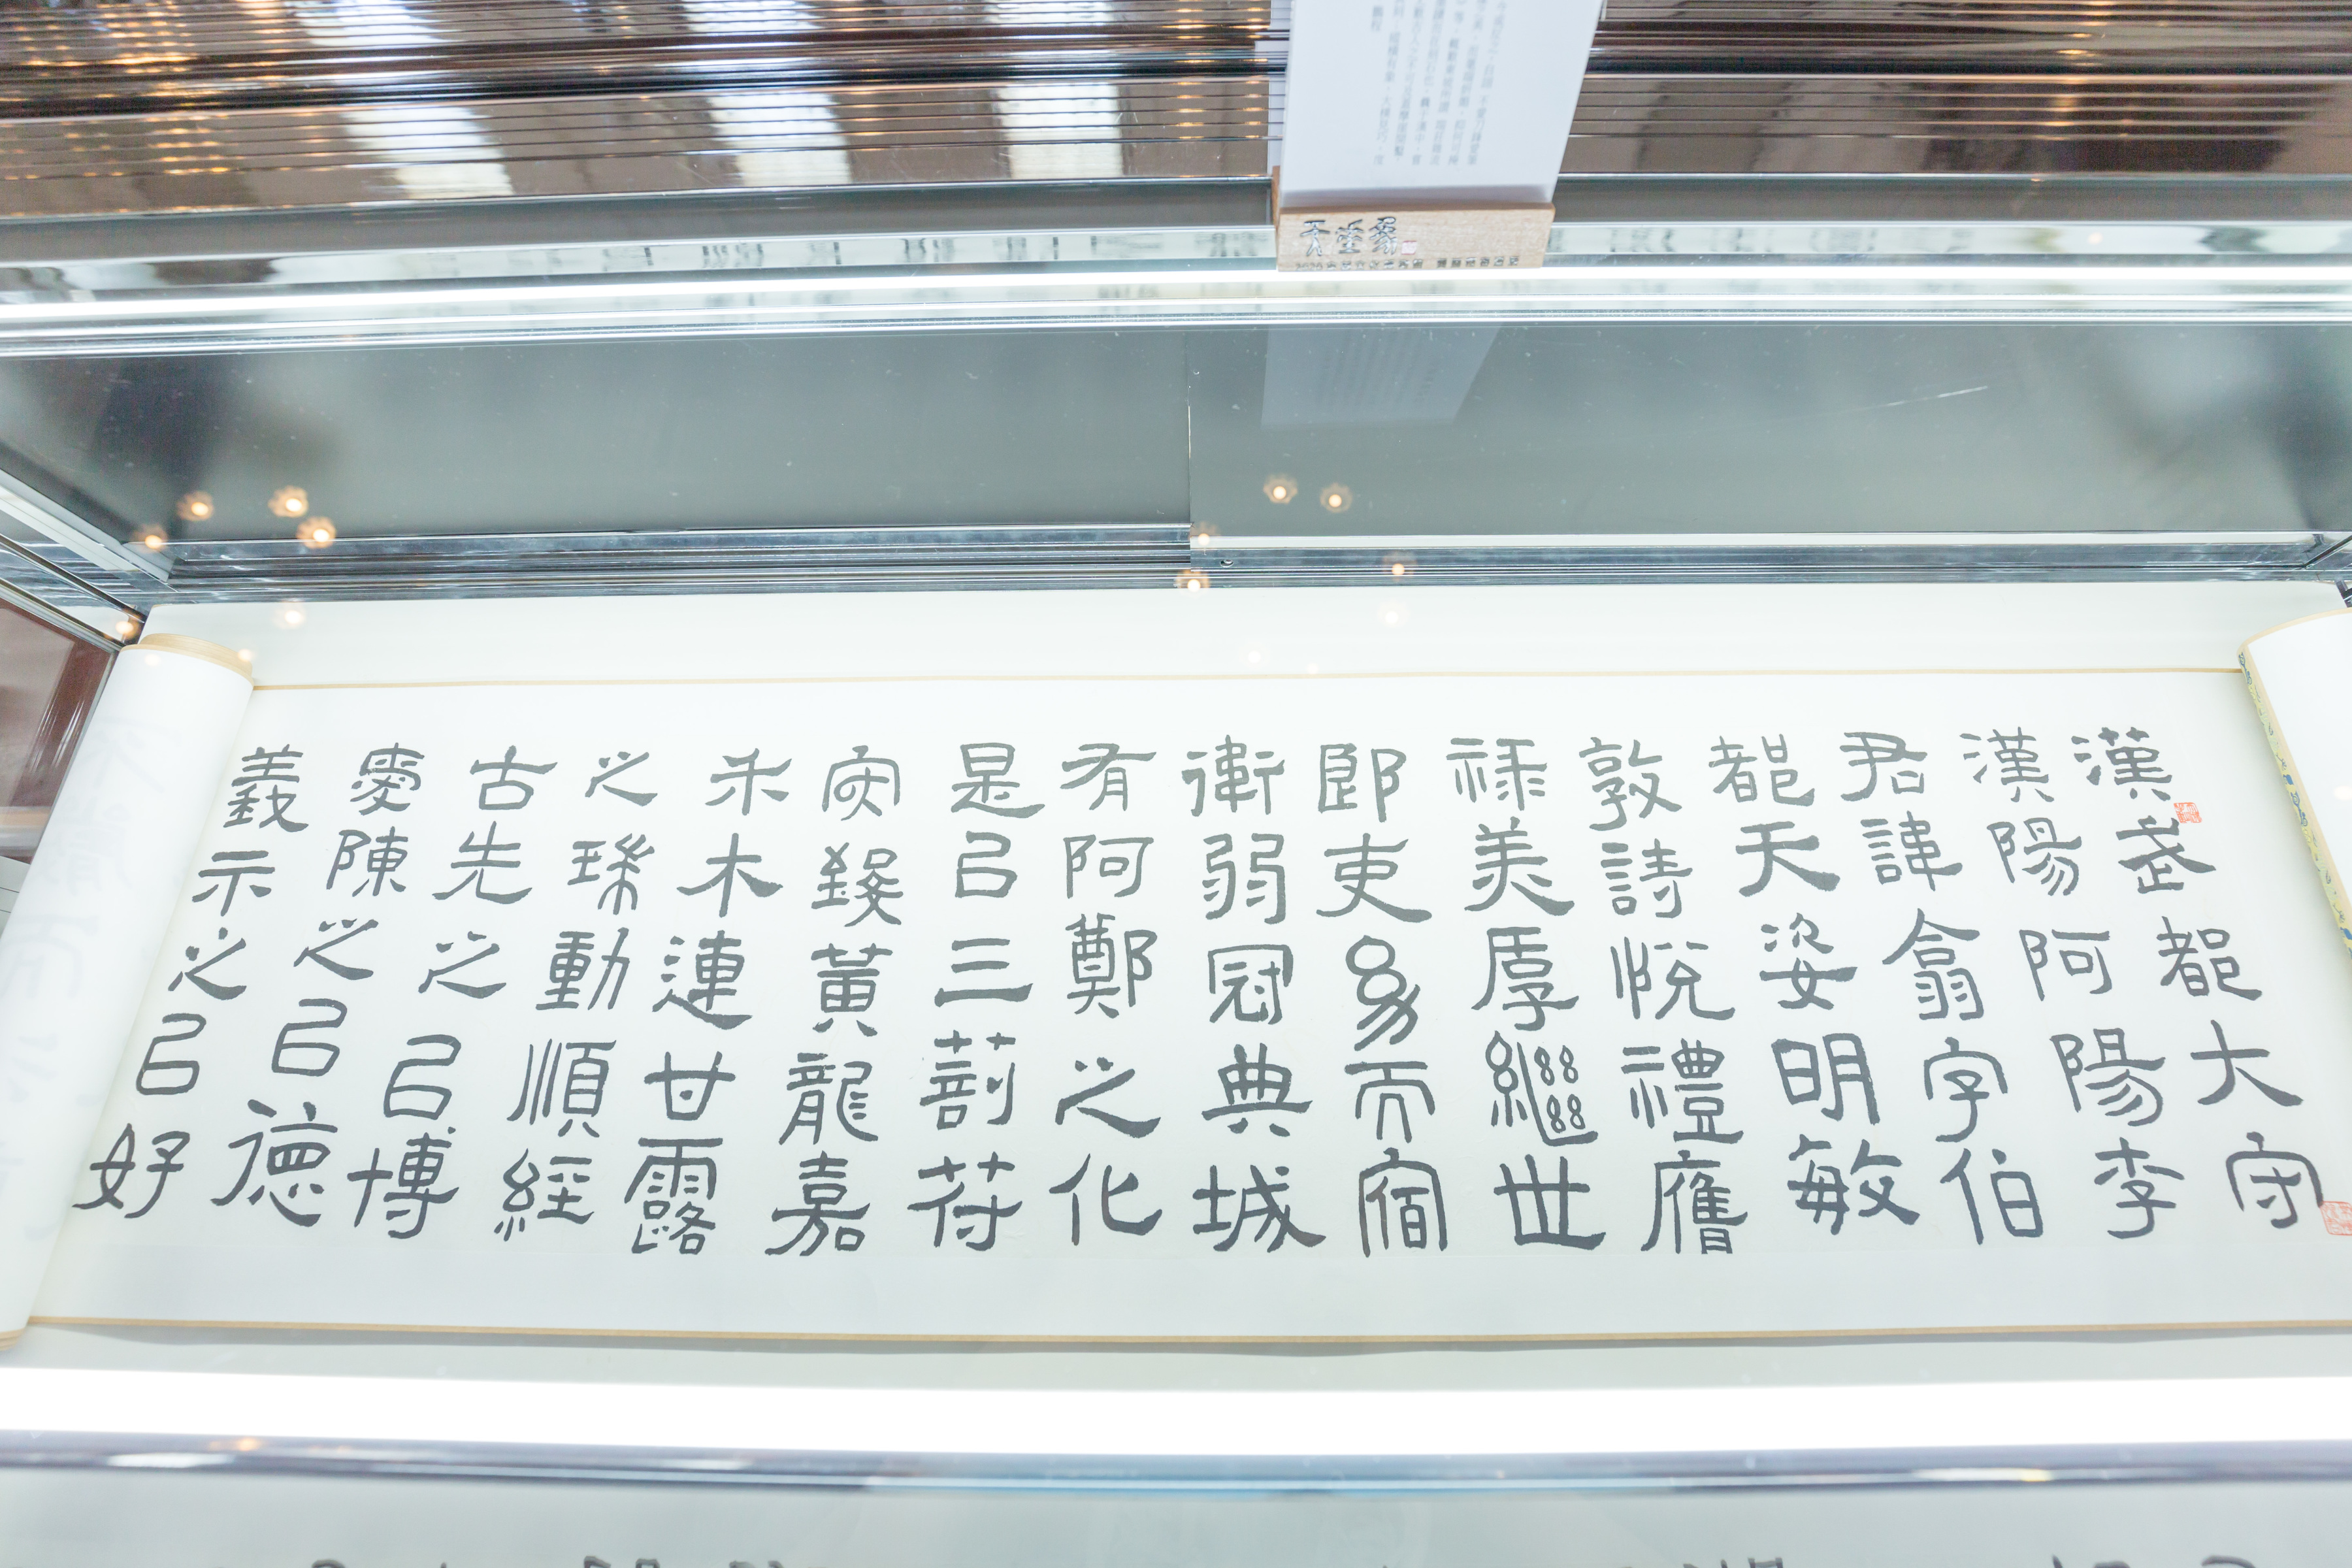 漢武都大守
漢陽阿陽李
君諱翕字伯
都天姿明敏
敦詩悅禮膺
祿美厚繼世
郎吏幼而宿
衛弱冠典城
有阿鄭之化
是㠯三剖符
守致黃龍嘉
禾木連甘露
之瑞動順經
古先之㠯博
愛陳之㠯德
義示之㠯好